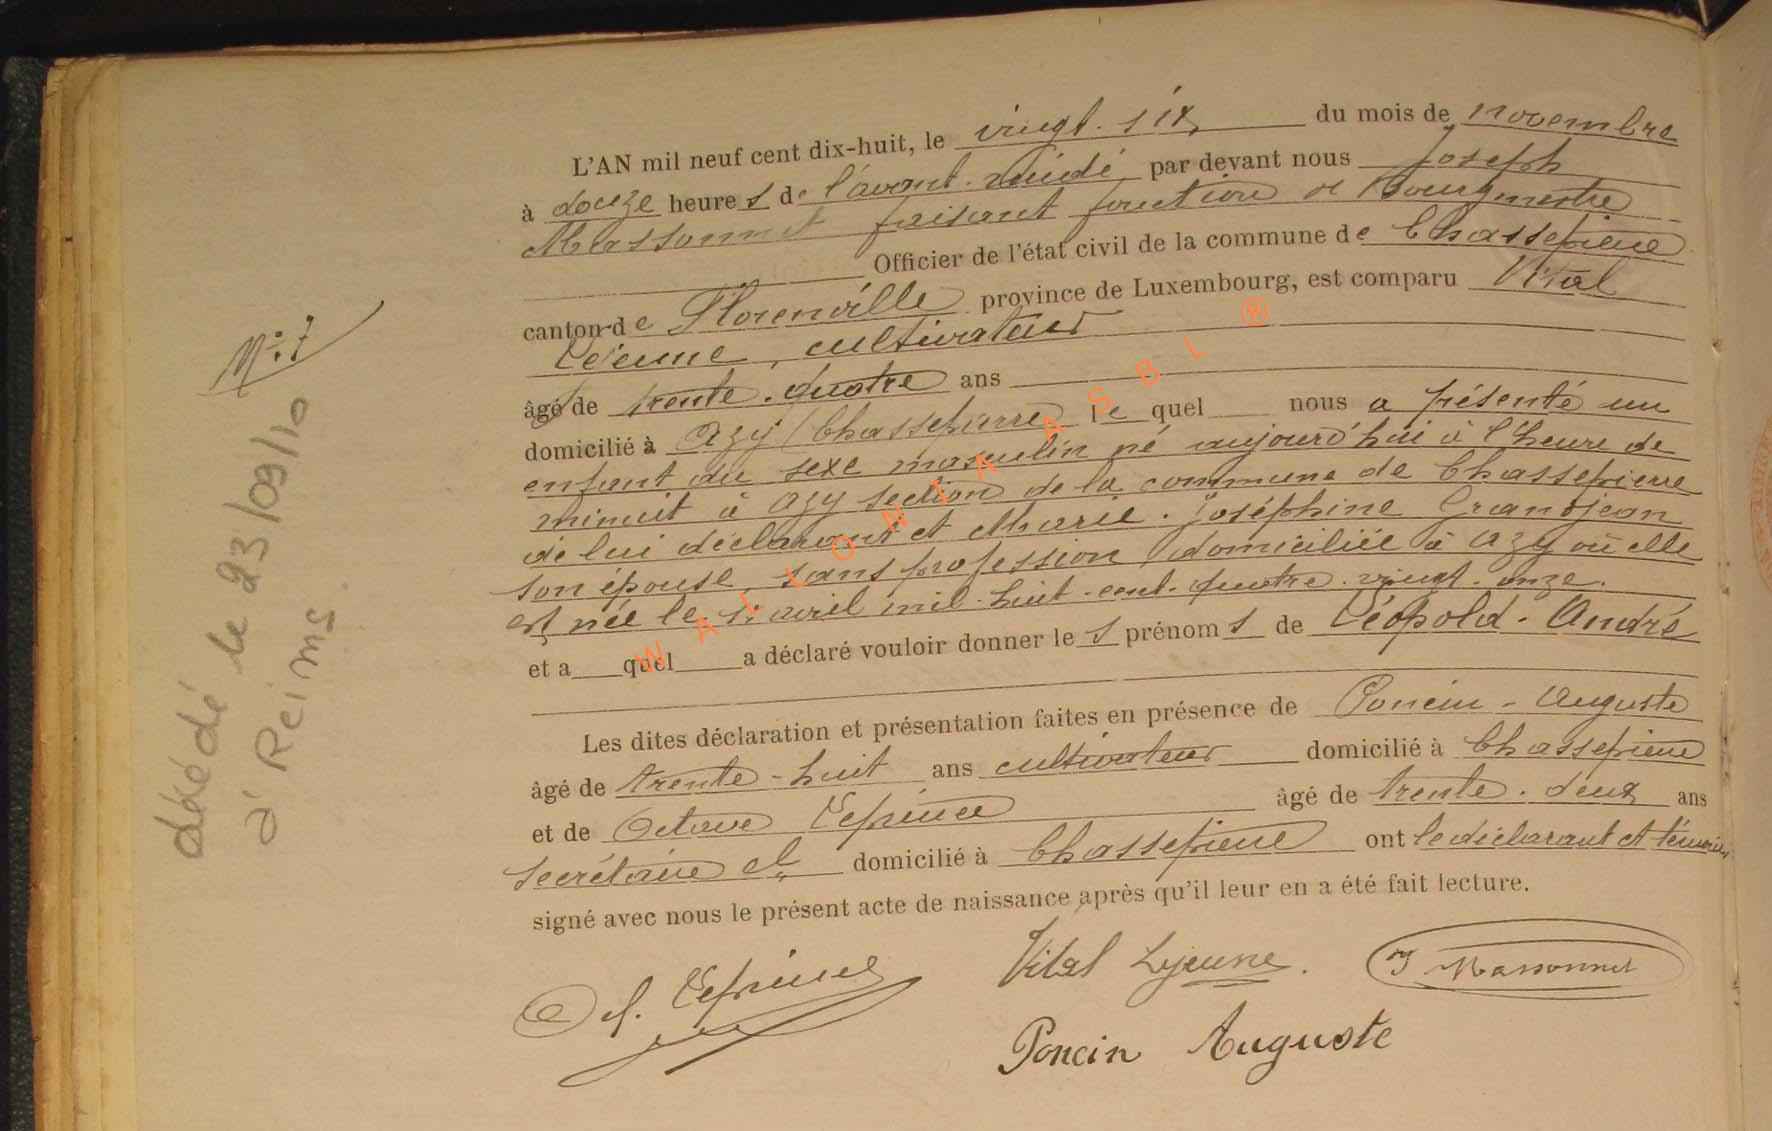 L'AN mil neuf cent dix-huit, le vingt-six du mois de novembre
à douze heures de l'avant-midi par devant nous Joseph
Massonnet faisant fonction de Bourgmestre
Officier de l'état civil de la commune de Chassepierre
canton de Florenville province de Luxembourg, est comparu Vital
Lejeune, cultivateur
âgé de trente-quatre ans
domicilié à Azy (Chassepierre) lequel nous a présenté un
enfant du sexe masculin né aujourd'hui à l'heure de
minuit à Azy section de la commune de Chassepierre
de lui déclarant et Marie-Joséphine Grandjean
son épouse, sans profession domiciliée à Azy où elle
est née le avril mil-huit-cent-quatre-vingt-onze.
et a quel a déclaré vouloir donner les prénoms de Léopold-André
Les dites déclaration et présentation faites en présence de Poncin-Auguste
âgé de trente-huit ans cultivateur domicilié à Chassepierre
et de Octave Leprince âgé de trente-deux ans
secrétaire cl domicilié à Chassepierre ont le déclarant et témoins
signé avec nous le présent acte de naissance après qu'il leur en a été fait lecture.
Leprince
Vital Lejeune.
J Massonnet
Poncin Auguste
N° 7
décédé le 23/09/10
à Reims.
WALLONIA ASBL ®